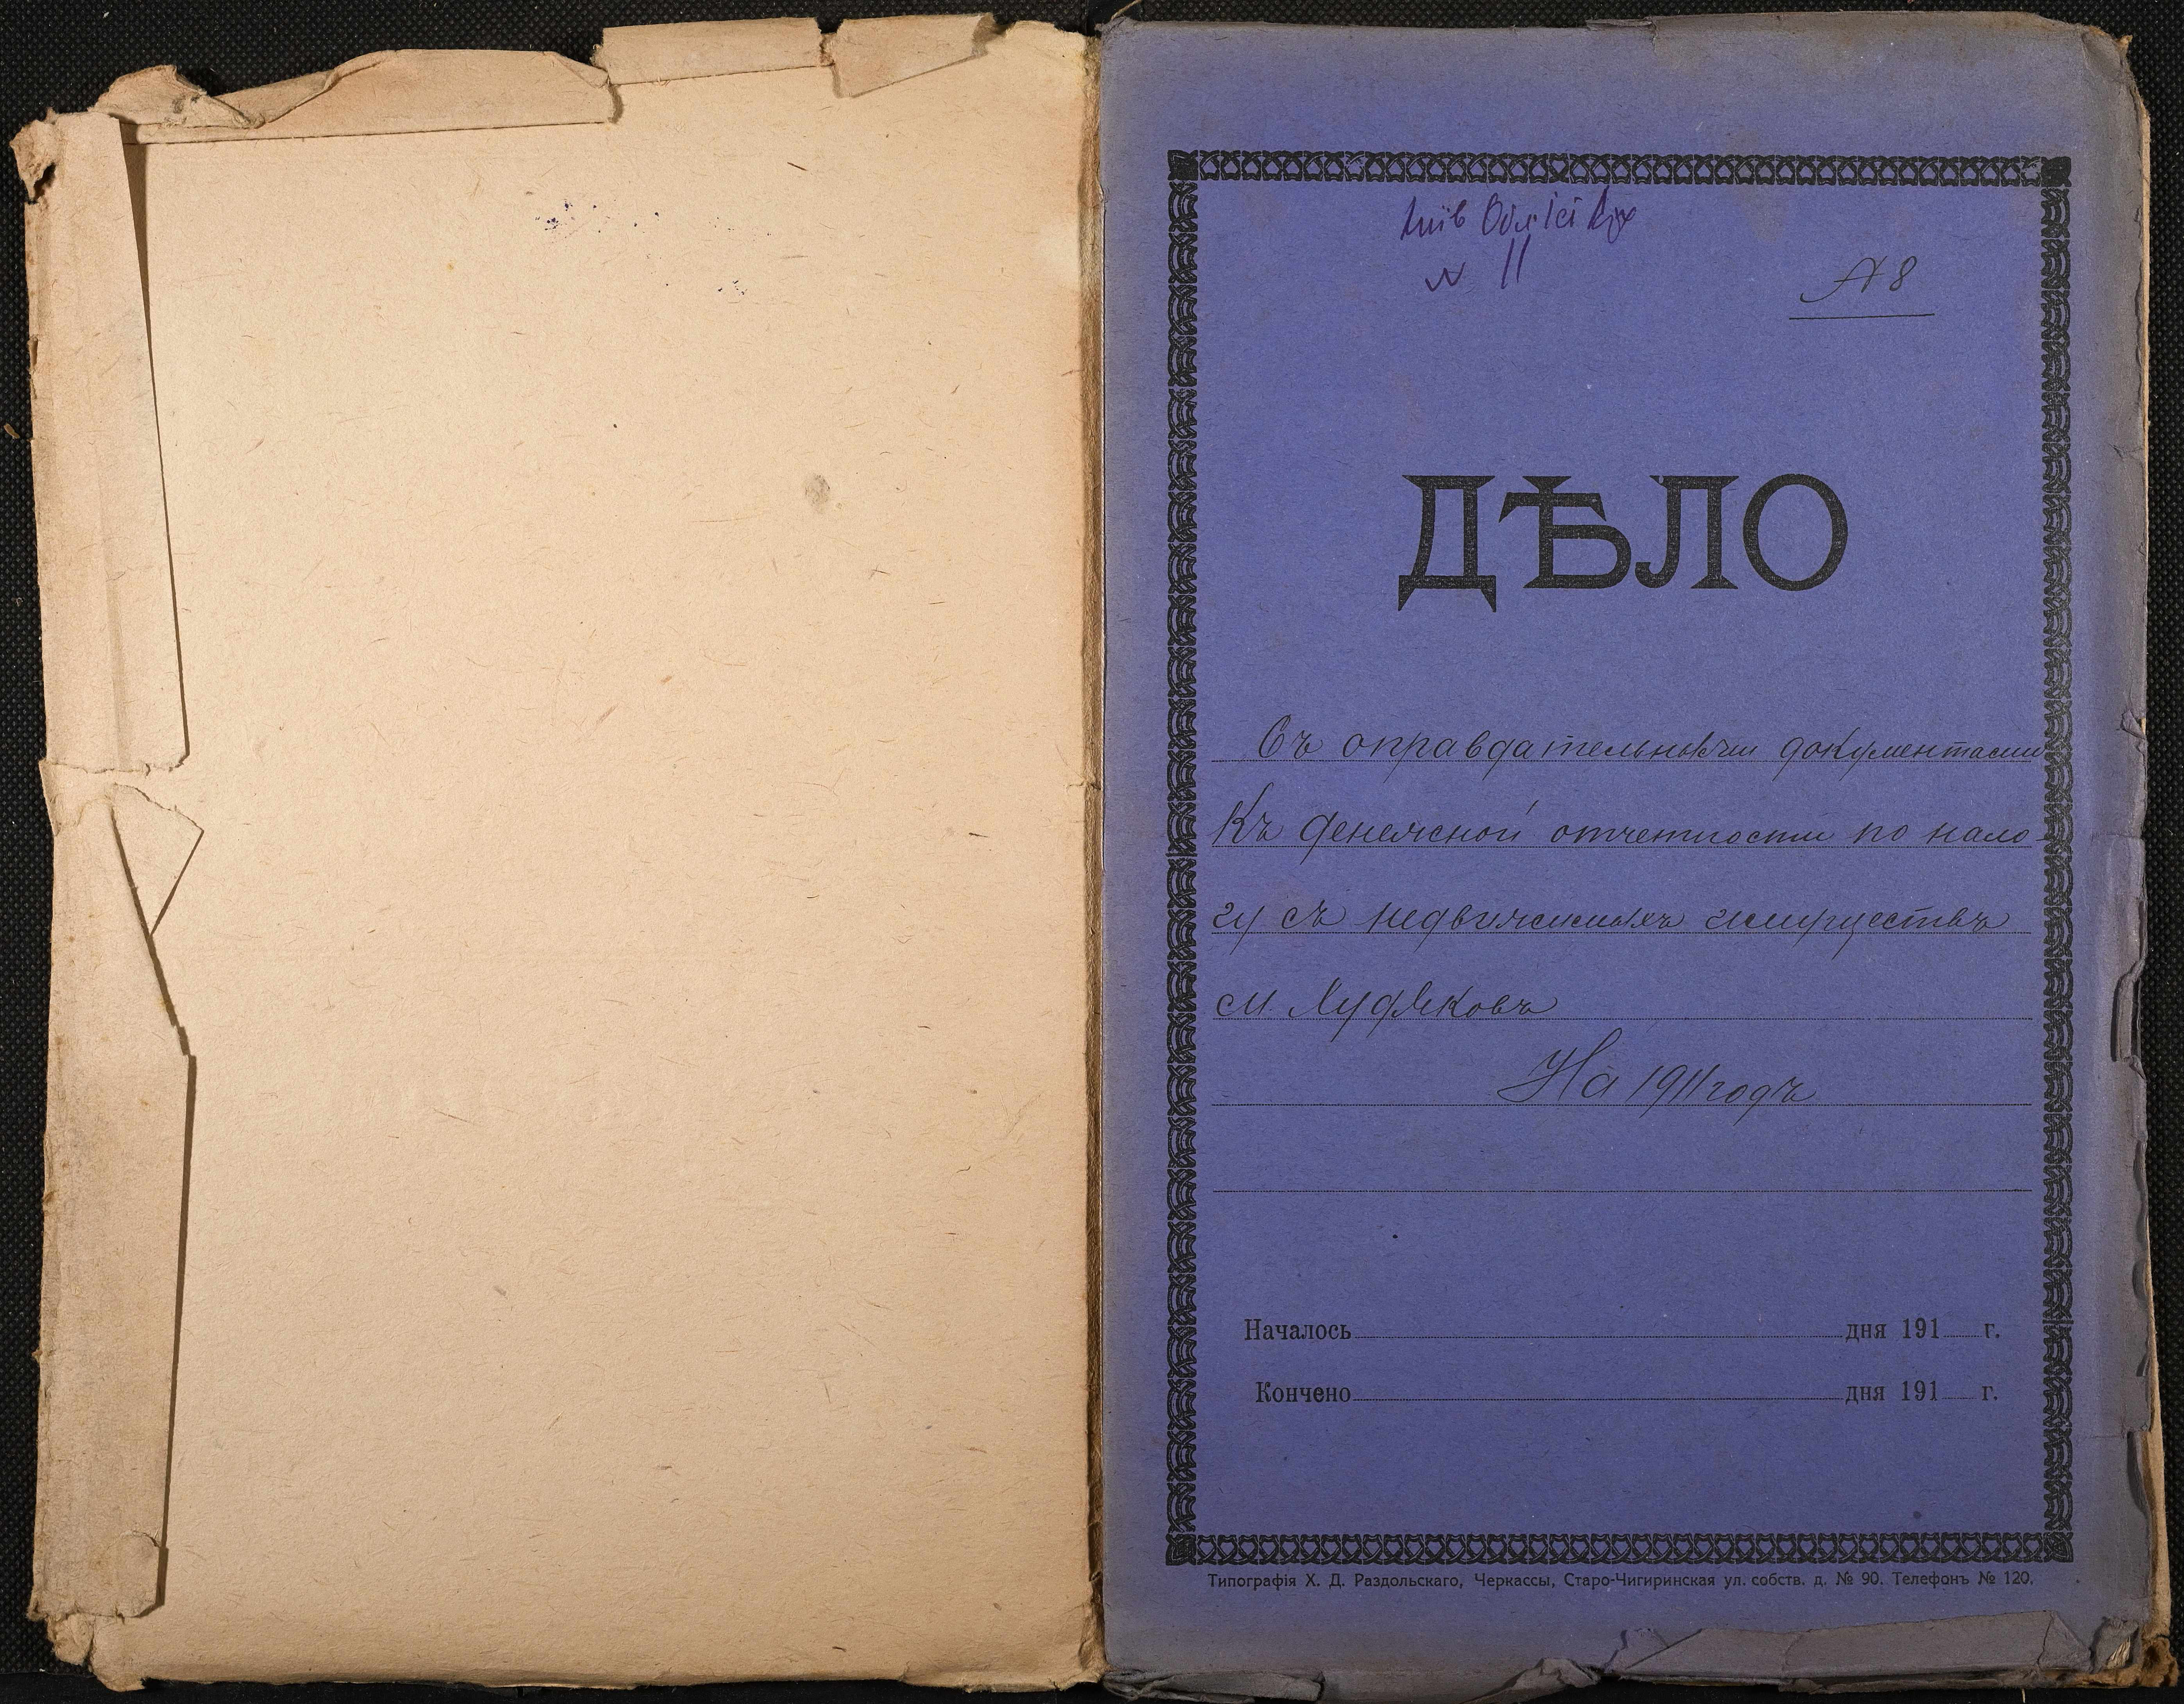 № 11
№ 8
ДѢЛО
Съ оправдательными документами
Къ денежной отчетности по нало-
гу съ недвижимыхъ имуществъ
м. Худяковъ
На 1911 годъ
Началось дня 191 г.
Кончено дня 191 г.
Типографія Х. Д. Раздольскаго, Черкассы, Старо-Чигиринская ул. собств. д. № 90. Телефонъ № 120.